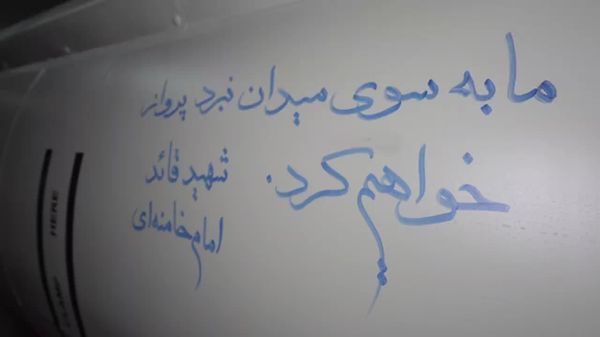 ما به سوی میدان نبرد پرواز
خواهیم کرد.
شهید قائد
امام خامنه‌ای
HERE
CLAMP